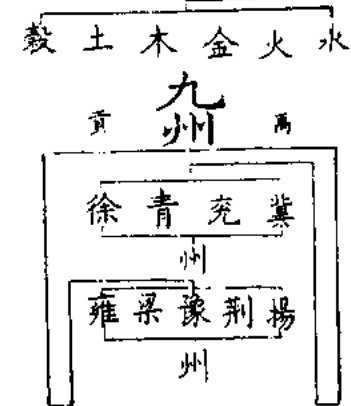 水火金木土穀
九州
禹貢
冀兖青徐
州
揚荆豫梁雍
州